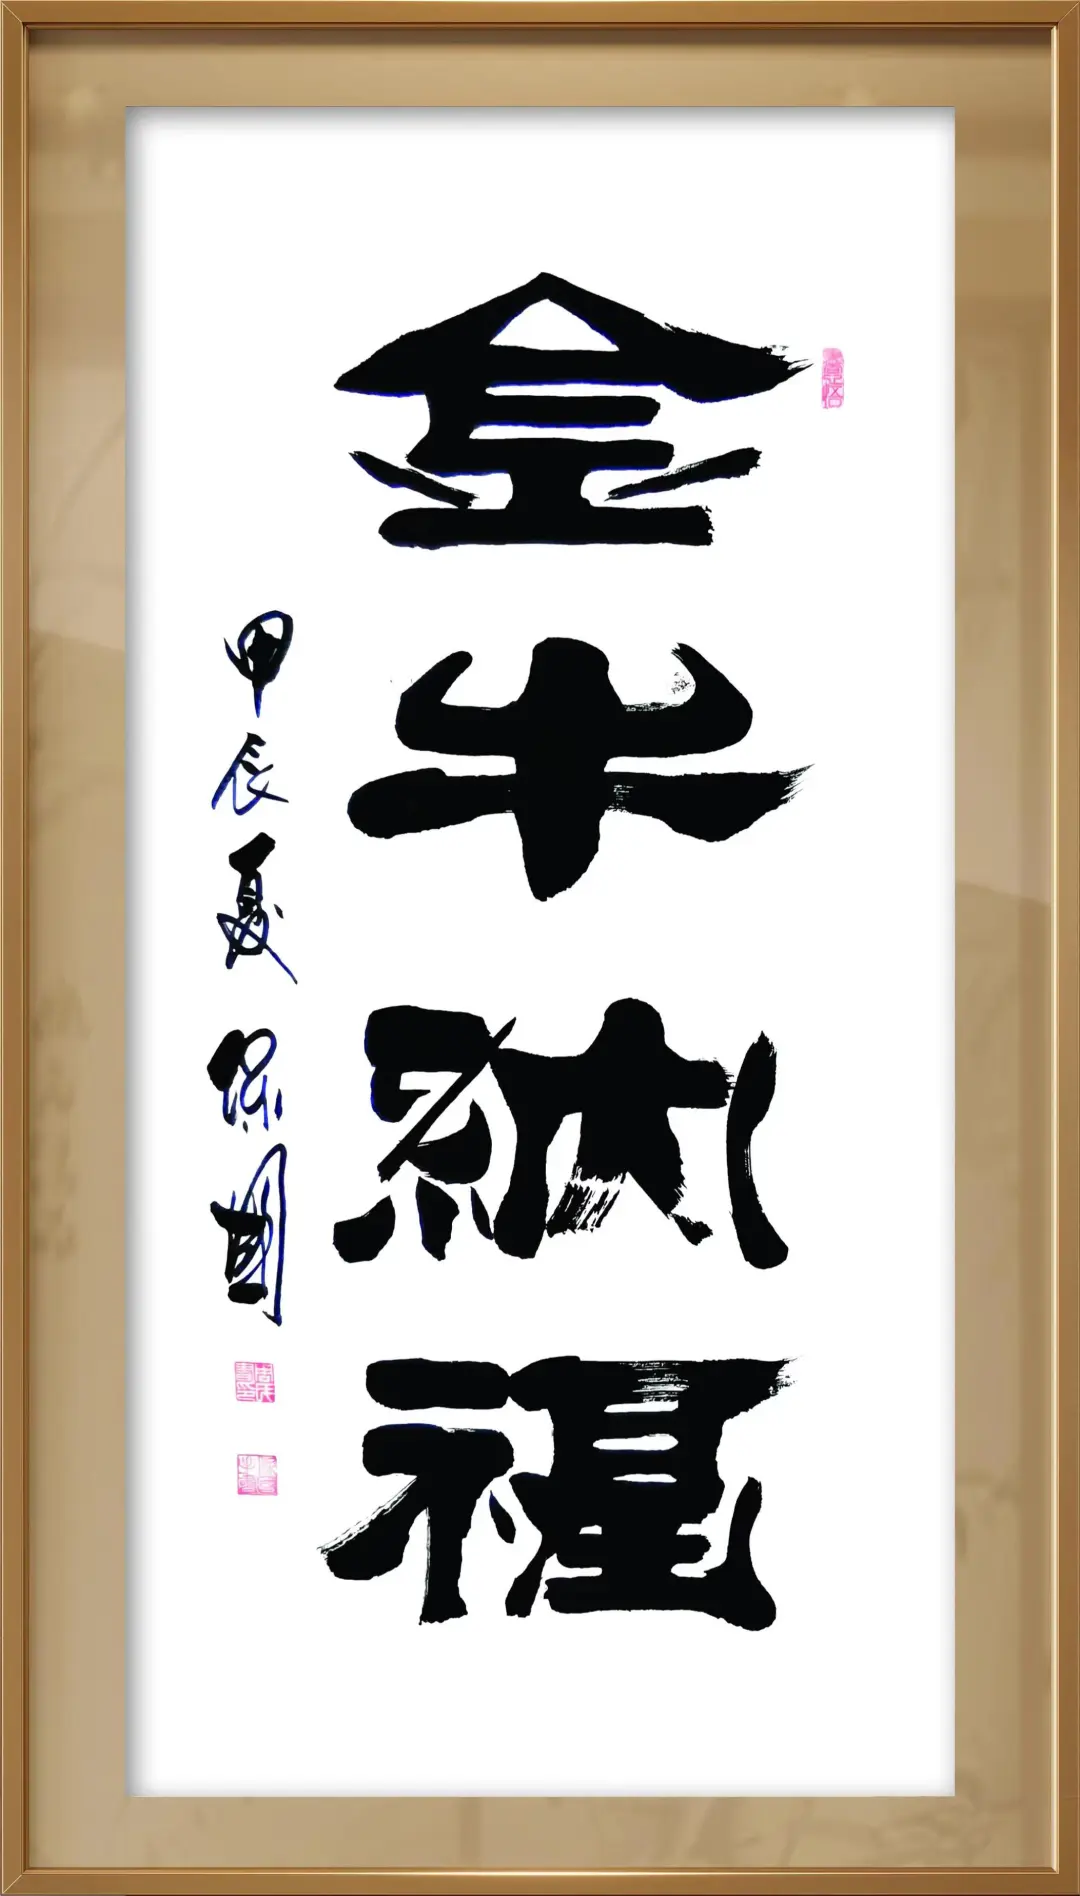 金牛纳福
甲辰夏 保国